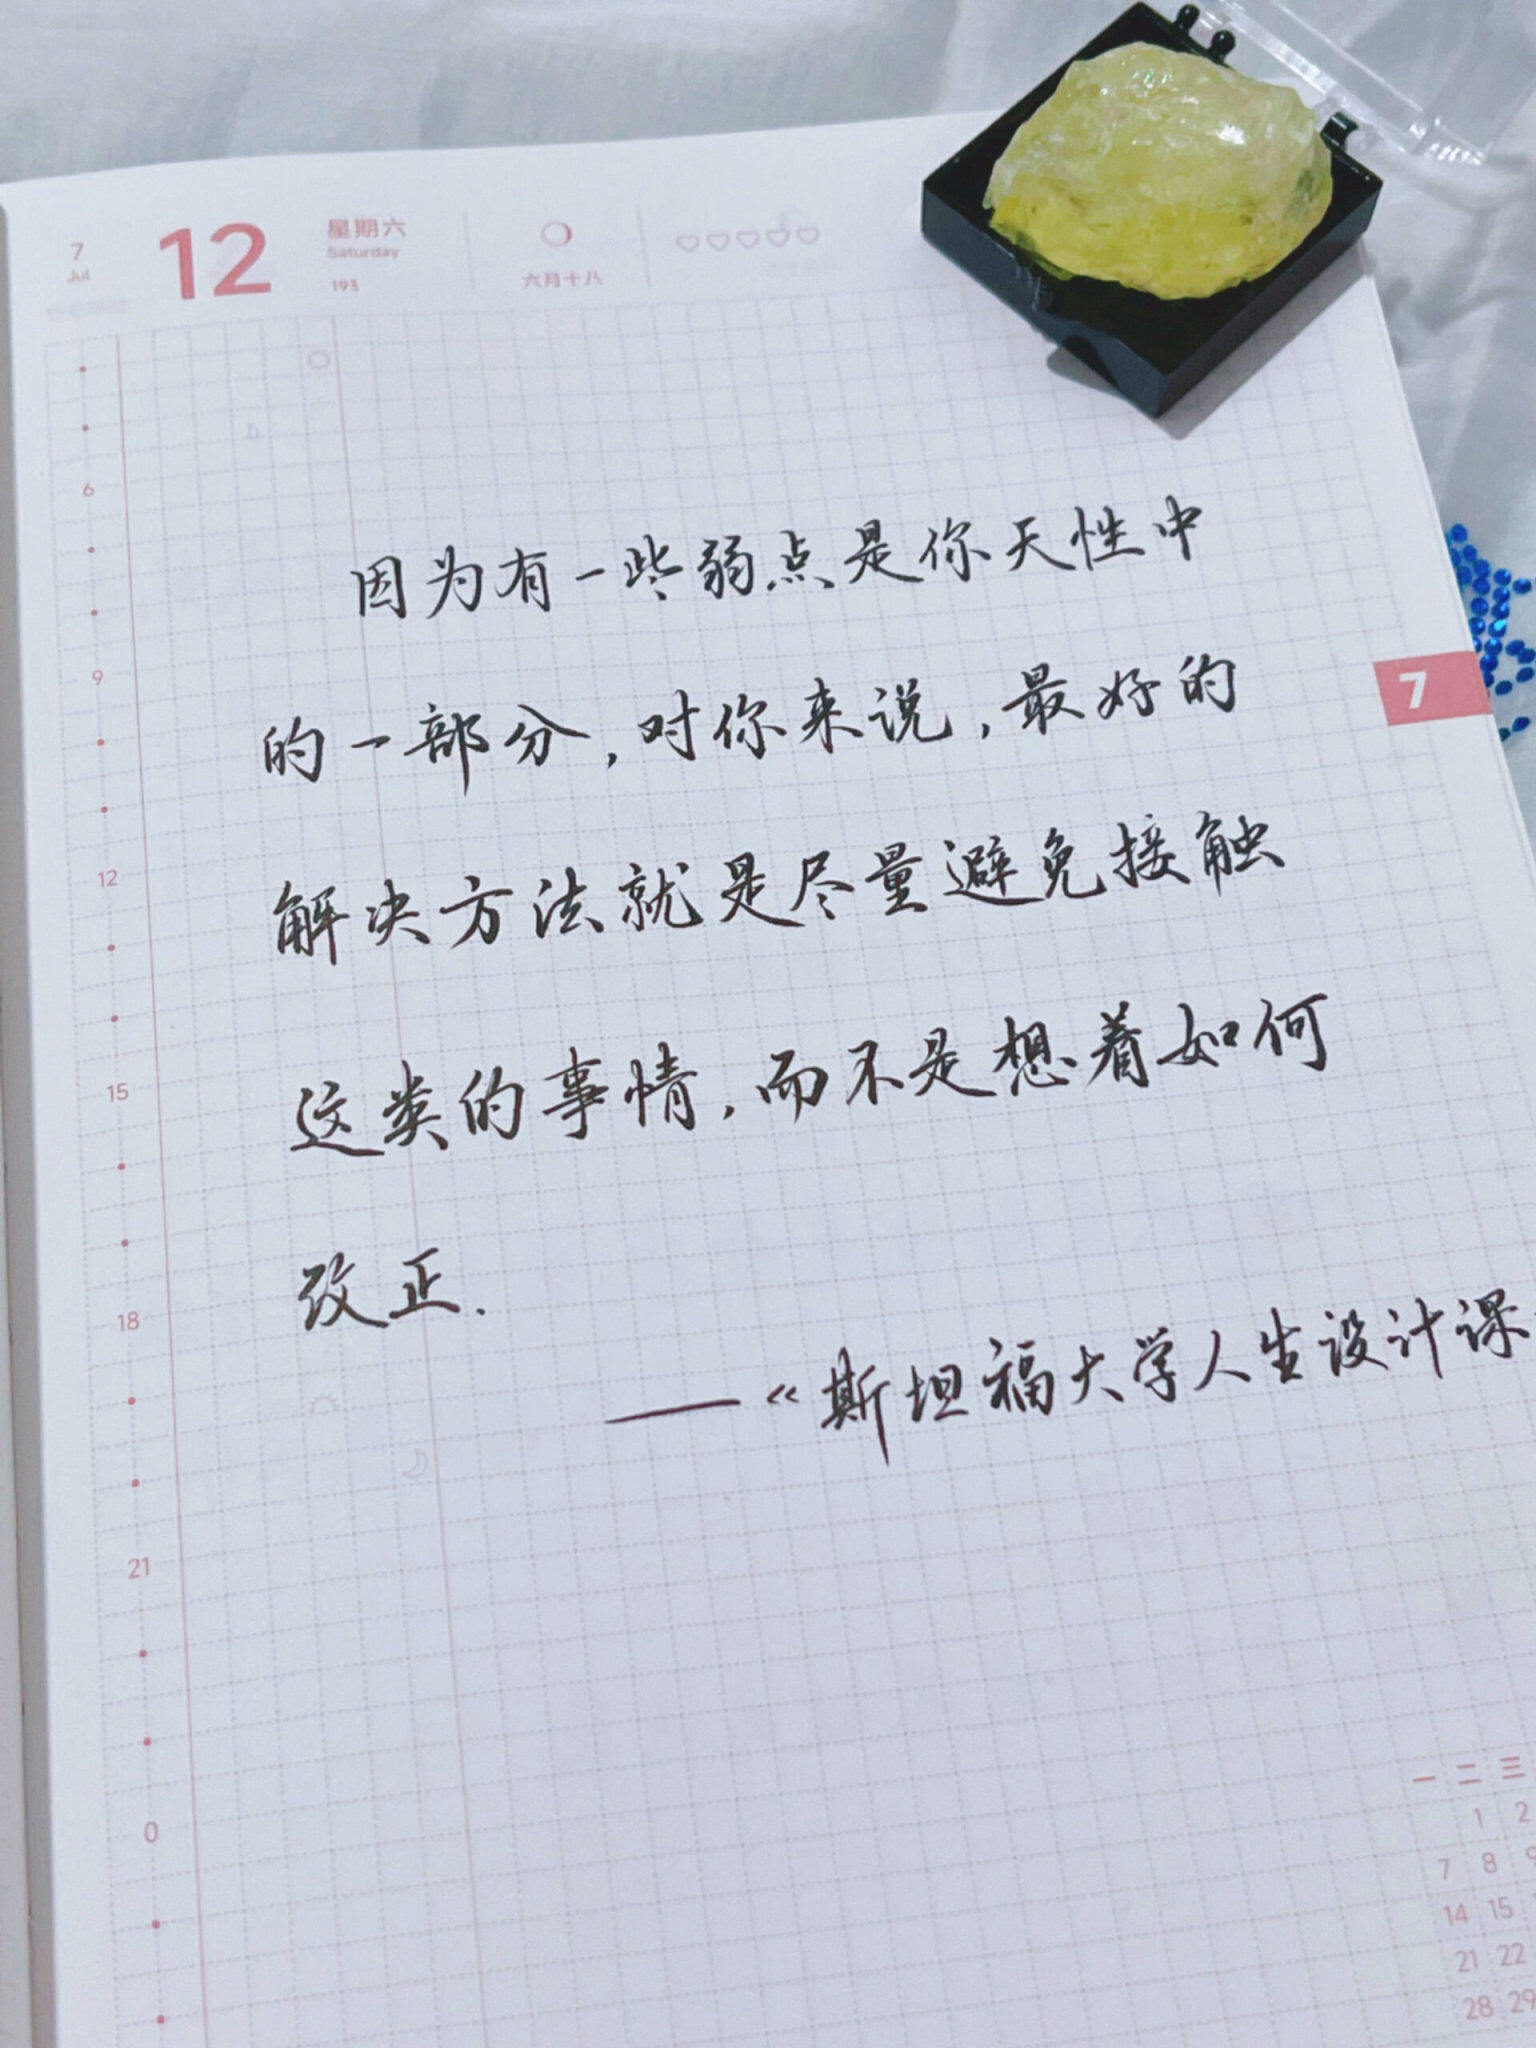 7
Jul
12
星期六
Saturday
193
六月十八
6
9
12
15
18
21
0
因为有一些弱点是你天性中
的一部分,对你来说,最好的
解决方法就是尽量避免接触
这类的事情,而不是想着如何
改正.
——《斯坦福大学人生设计课
7
一 二 三
1 2
7 8 9
14 15
21 22
28 29